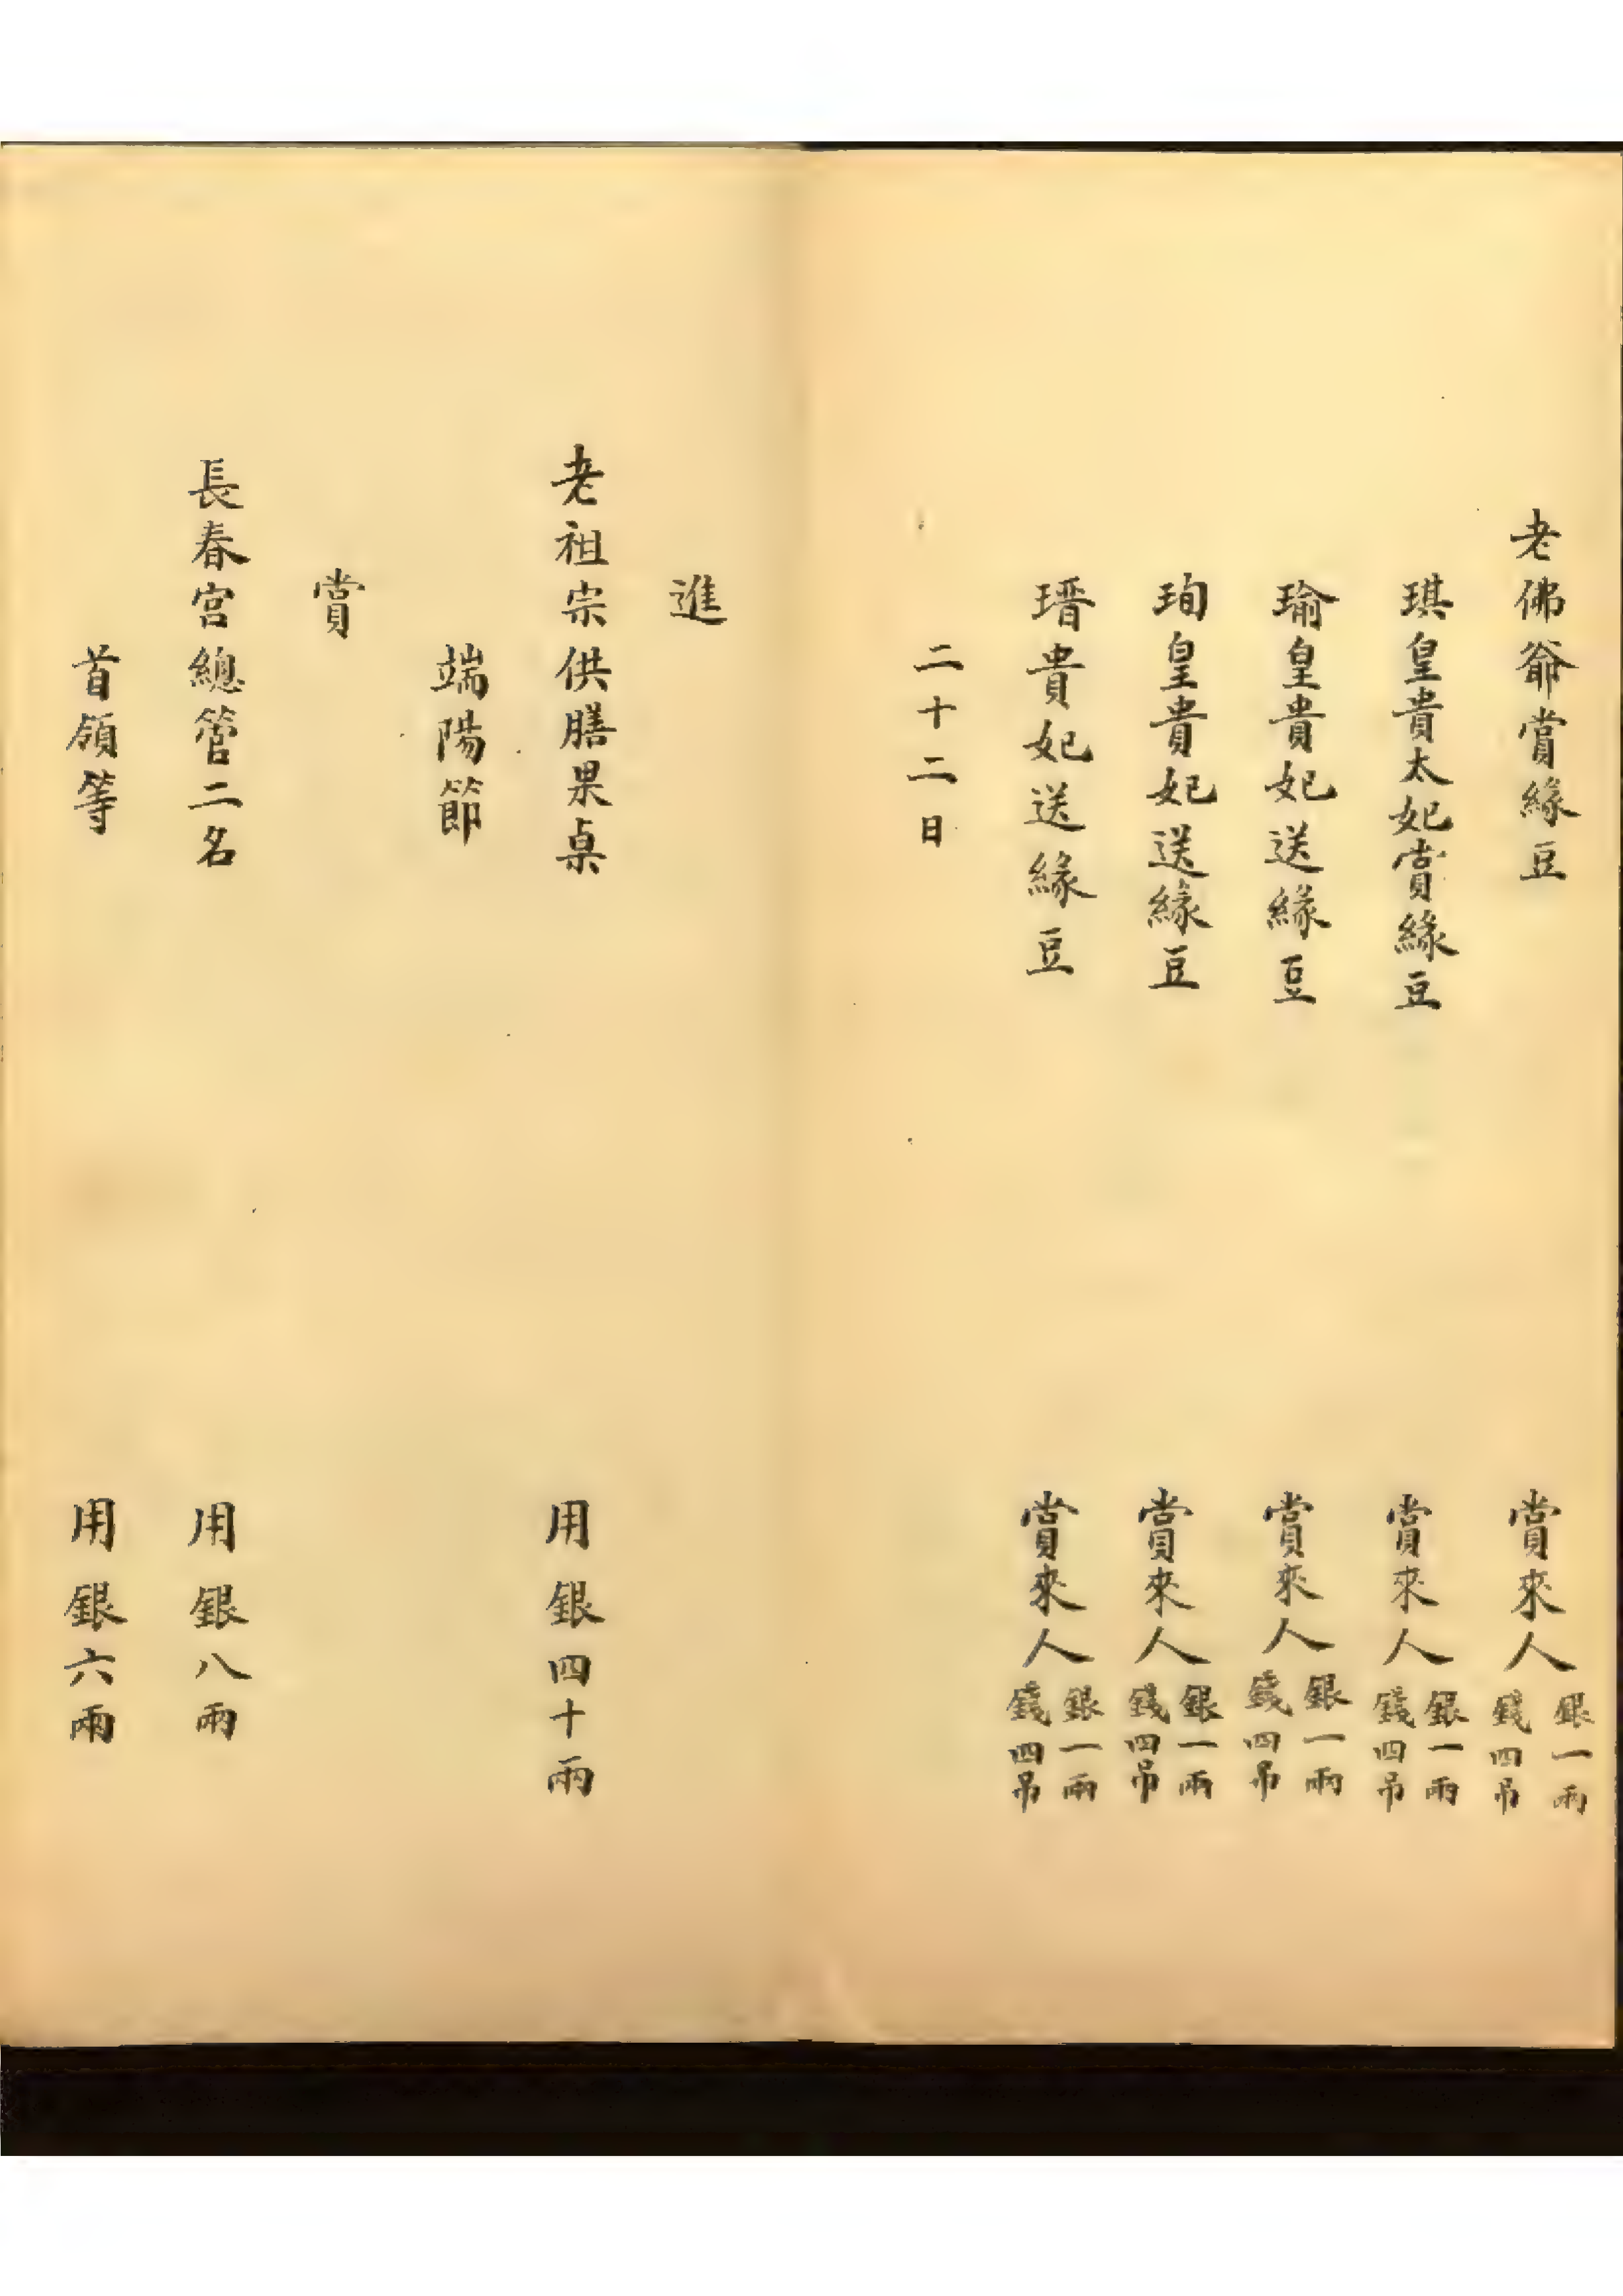 老佛爺賞緣豆 賞來人 銀一兩 錢四吊
琪皇貴太妃賞緣豆 賞來人 銀一兩 錢四吊
瑜皇貴妃送緣豆 賞來人 銀一兩 錢四吊
珣皇貴妃送緣豆 賞來人 銀一兩 錢四吊
瑨貴妃送緣豆 賞來人 銀一兩 錢四吊
二十二日
進
老祖宗供膳果桌 用銀四十兩
端陽節
賞
長春宮總管二名 用銀八兩
首領等 用銀六兩